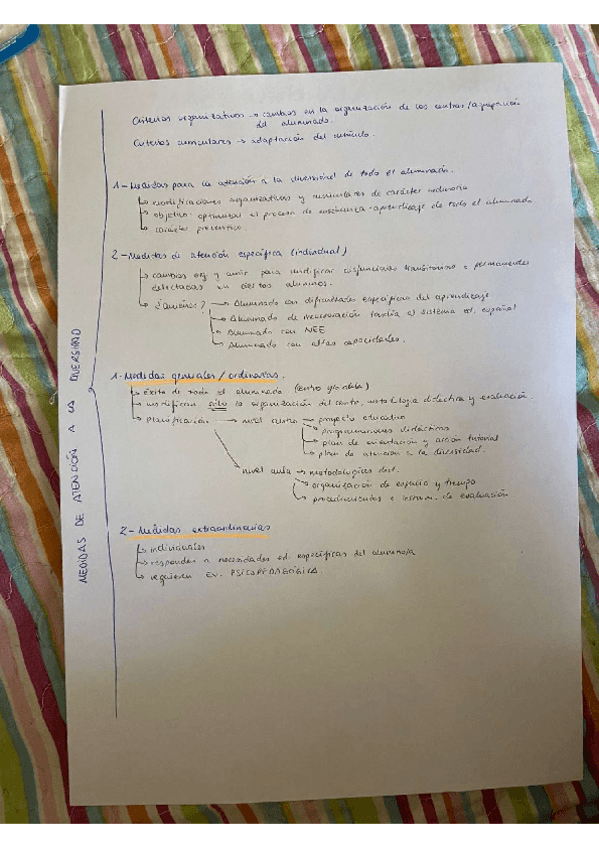 MEDIDAS DE ATENCIÓN A LA DIVERSIDAD
Criterios organizativos → cambios en la organización de los centros/agrupación
del alumnado.
Criterios curriculares → adaptación del currículo.
1- Medidas para la atención a la diversidad de todo el alumnado.
↳ modificaciones organizativas y curriculares de carácter ordinario
↳ objetivo: optimizar el proceso de enseñanza-aprendizaje de todo el alumnado
↳ carácter preventivo.
2- Medidas de atención específica (individual)
↳ cambios org y curric para modificar disfunciones transitorias o permanentes
detectadas en ciertos alumnos.
↳ ¿Quiénes? → Alumnado con dificultades específicas del aprendizaje
→ Alumnado de incorporación tardía al sistema ed. español
→ Alumnado con NEE
→ Alumnado con altas capacidades.
1- Medidas generales/ordinarias.
↳ éxito de todo el alumnado (centro y/o aula)
↳ modifican sólo la organización del centro, metodología didáctica y evaluación.
↳ planificación → nivel centro → proyecto educativo
→ programaciones didácticas
→ plan de orientación y acción tutorial
→ plan de atención a la diversidad.
nivel aula → metodologías
→ organización de espacio y tiempo
→ procedimientos e instrum. de evaluación
2- Medidas extraordinarias
↳ individuales
↳ responden a necesidades ed. específicas del alumno/a
↳ requieren EV. PSICOPEDAGÓGICA